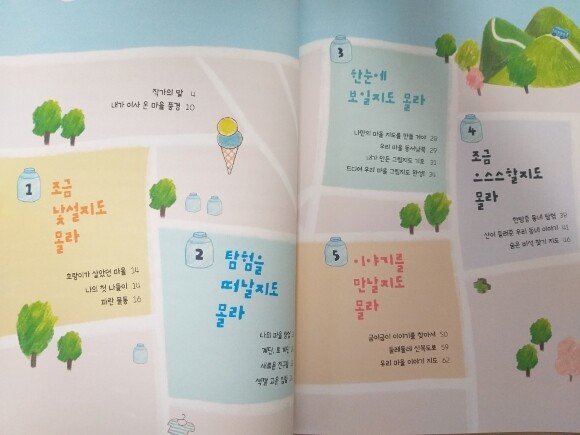 작가의 말 4
내가 이사 온 마을 풍경 10
1
조금
낯설지도
몰라
호랑이가 살았던 마을 14
나의 첫 나들이 14
파란 물통 16
2
탐험을
떠날지도
몰라
나의 마을 탐험
계단, 또 계단
새로운 친구들
색깔 고운 집들
3
한눈에
보일지도 몰라
나만의 마을 지도를 만들 거야 28
우리 마을 동서남북 29
내가 만든 그림지도 기호 31
드디어 우리 마을 그림지도 완성!
4
조금
으스스할지도
몰라
한밤중 동네 탐험 39
산이 들려준 우리 동네 이야기 41
숨은 비석 찾기 지도 46
5
이야기를
만날지도
몰라
굽이굽이 이야기를 찾아서 50
둘레둘레 산복도로 59
우리 마을 이야기 지도 62